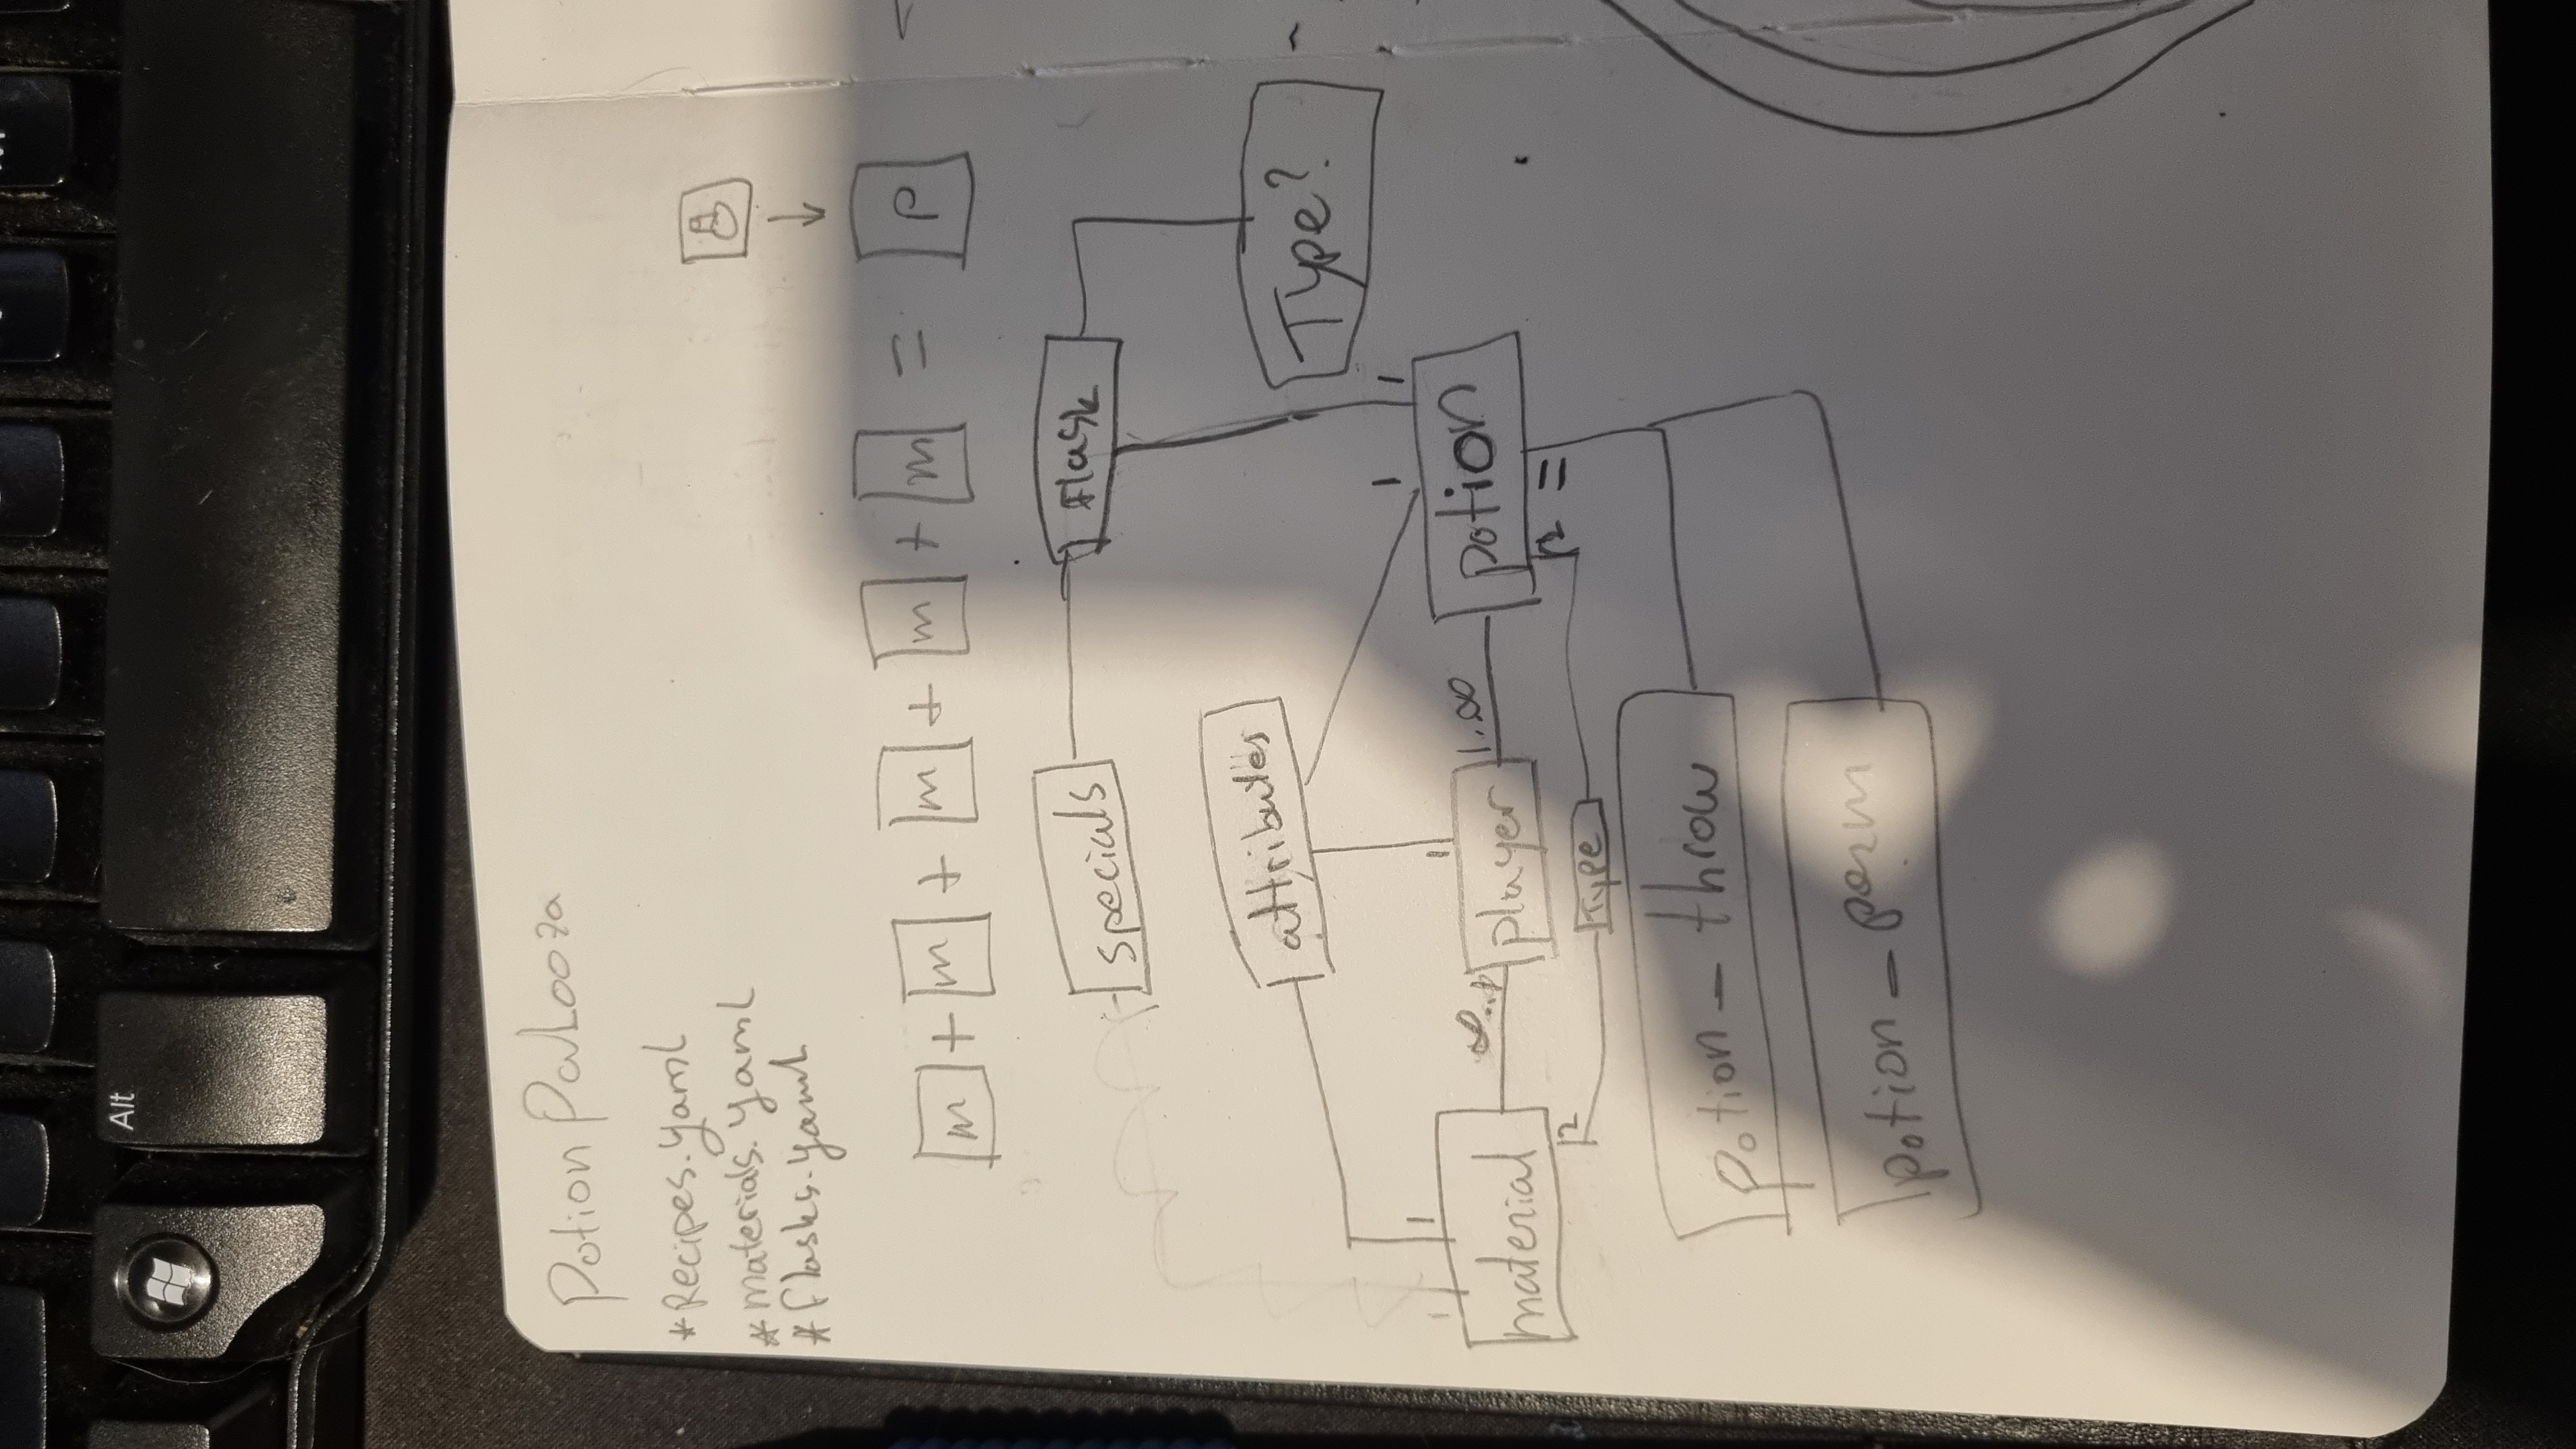 Alt
Potion Palooza
* Recipes.yaml
* materials.yaml
* flasks.yaml
m + m + m + m + m = p
specials
flask
attributes
Type?
1
1
1
1
1
material
∞..1
player
1..∞
potion
12
Type
12
=
potion_throw
potion_perm